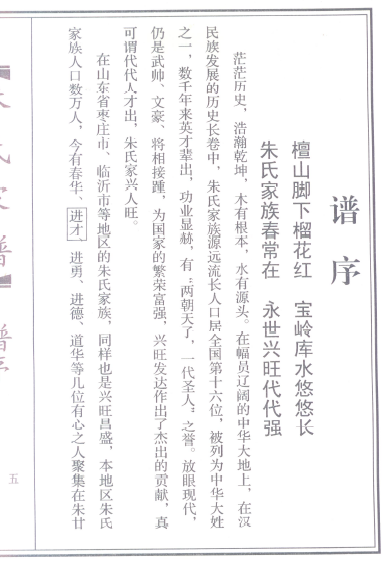 谱序
檀山脚下榴花红　宝岭库水悠悠长
朱氏家族春常在　永世兴旺代代强
茫茫历史，浩瀚乾坤，木有根本，水有源头。在幅员辽阔的中华大地上，在汉
民族发展的历史长卷中，朱氏家族源远流长人口居全国第十六位，被列为中华大姓
之一，数千年来英才辈出，功业显赫，有“两朝天子，一代圣人”之誉。放眼现代，
仍是武帅、文豪、将相接踵，为国家的繁荣富强，兴旺发达作出了杰出的贡献，真
可谓代代人才出，朱氏家兴人旺。
在山东省枣庄市、临沂市等地区的朱氏家族，同样也是兴旺昌盛，本地区朱氏
家族人口数万人，今有春华、进才、进勇、进德、道华等几位有心之人聚集在朱甘
氏家谱
谱序
五